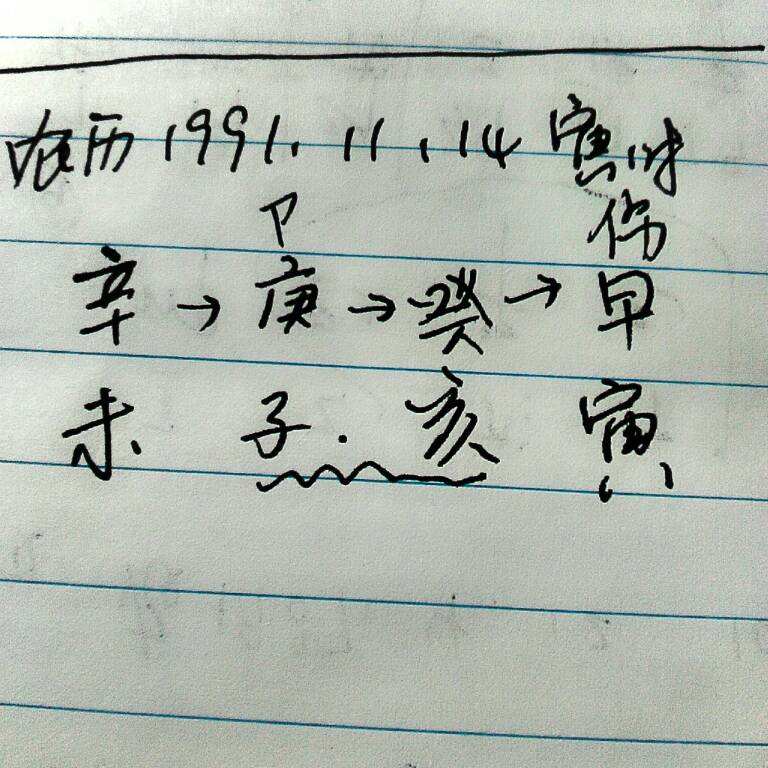 农历1991.11.14 寅时
卩 伤
辛→庚→癸→甲
未 子. 亥 寅